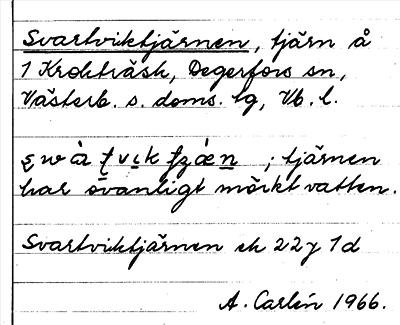 Svartviktjärnen, tjärn å
1 Krokträsk, Degerfors sn,
Västerb. s. doms. lg, Vb. l.
; tjärnen
har ovanligt mörkt vatten.
Svartviktjärnen ek 22 j 1 d
A. Carlén 1966.